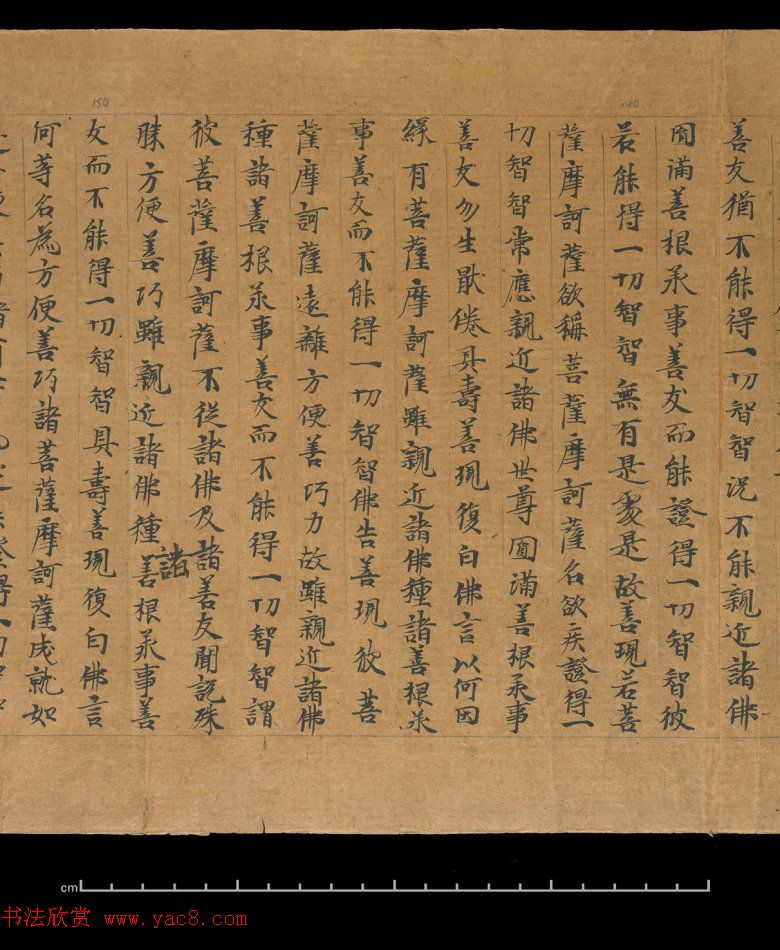 善友猶不能得一切智智況不能親近諸佛
圓滿善根承事善友而能證得一切智智彼
若能得一切智智無有是處是故善現若菩
薩摩訶薩欲稱菩薩摩訶薩名欲疾證得一
切智智常應親近諸佛世尊圓滿善根承事
善友勿生猒倦具壽善現復白佛言以何因
緣有菩薩摩訶薩雖親近諸佛種諸善根承
事善友而不能得一切智智佛告善現彼菩
薩摩訶薩遠離方便善巧力故雖親近諸佛
種諸善根承事善友而不能得一切智智謂
彼菩薩摩訶薩不從諸佛及諸善友聞說殊
諸
殊方便善巧雖親近諸佛種善根承事善
友而不能得一切智智具壽善現復白佛言
何等名為方便善巧諸菩薩摩訶薩成就如
150
140
cm
书法欣赏 www.yac8.com